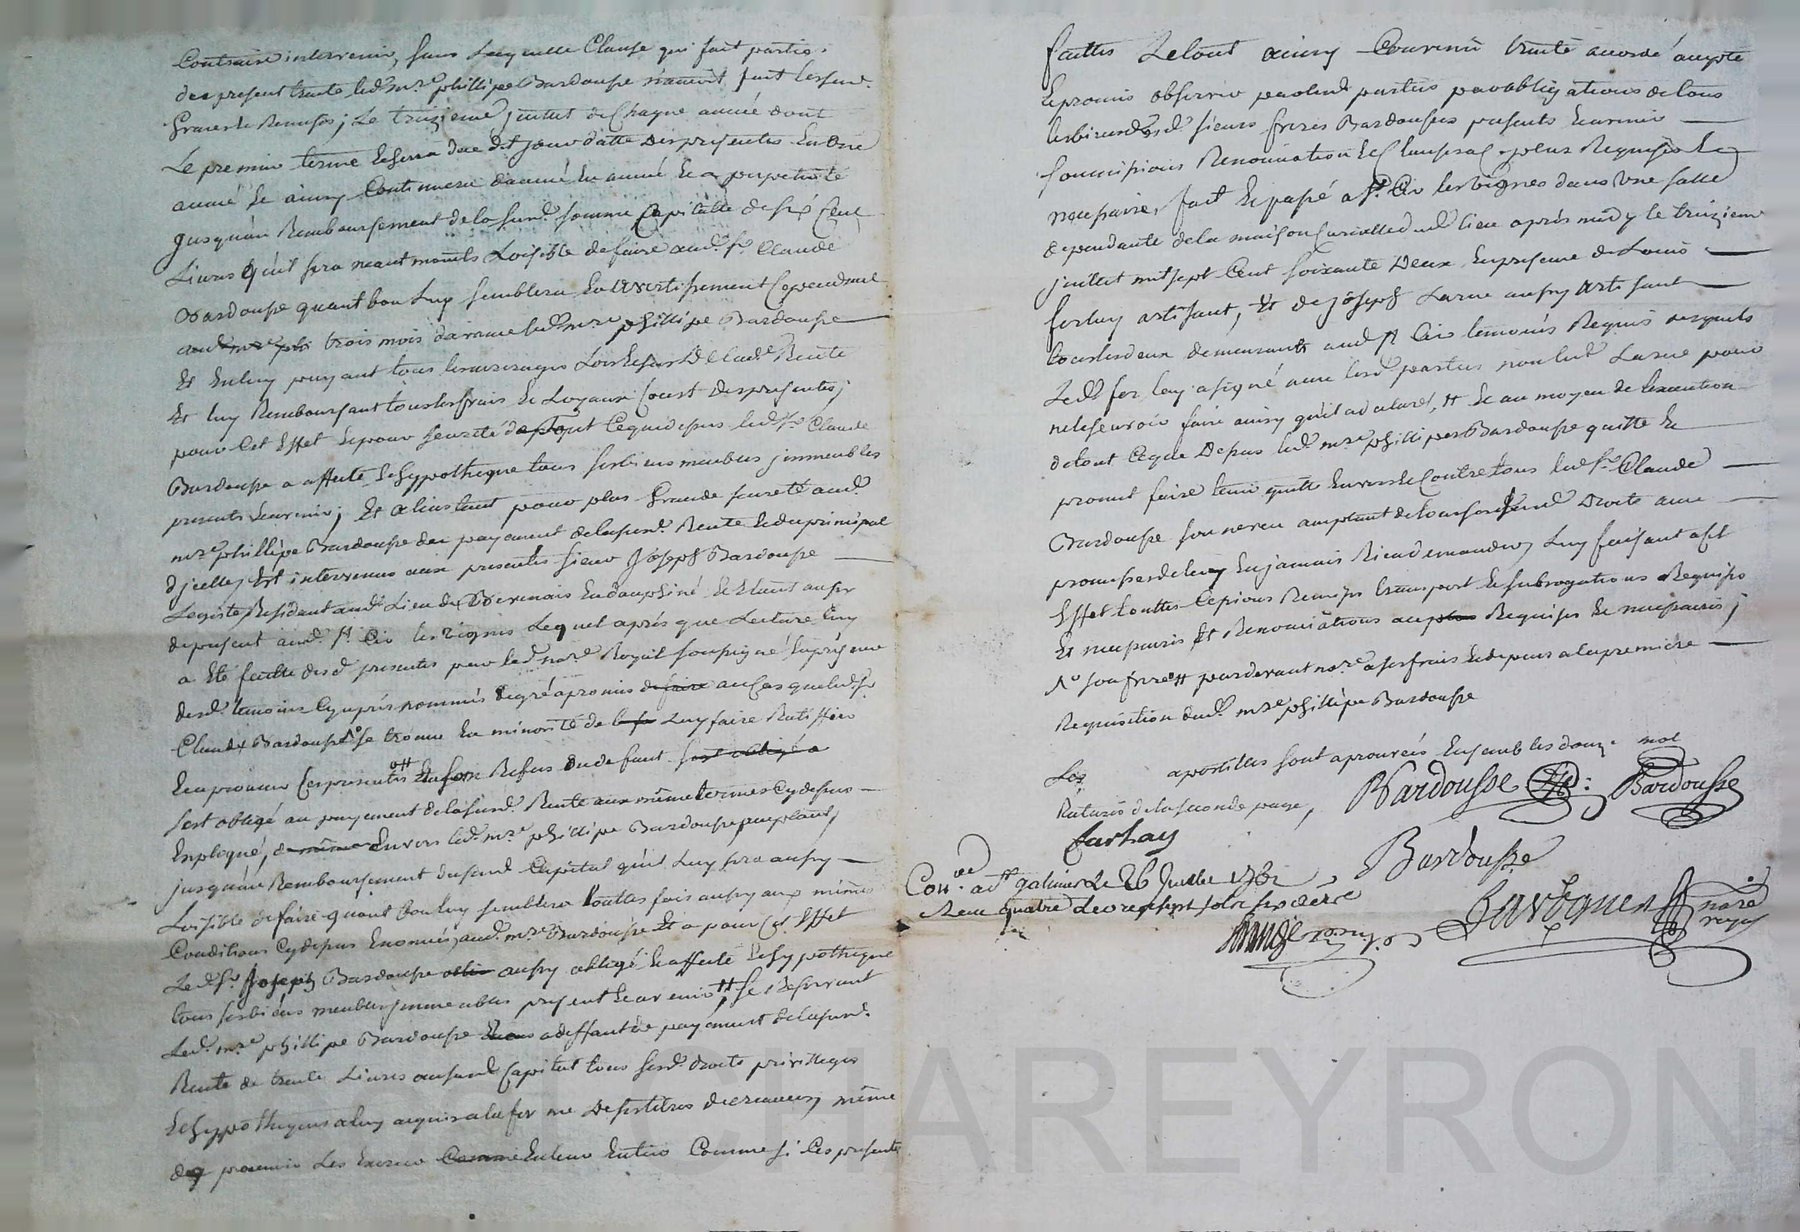 Contraire intervenir, sans laquelle Clause qui fait partie
du present traite led. mre phillipe Bardousse n'auroit fait lesusd.
Grace et Remises; Le treizieme juillet de Chaque année dont
Le premier terme Echerra du d. jour d'atte des presentes En une
année Et ainsy Continuera d'année En année Et a perpetuité
jusqu'au Remboursement de la susd. somme Capitalle de six Cent
Livres qu'il sera neantmoints Loisible de faire aud. sr. Claude
Bardousse quant bon Luy semblera En avertissement Cependant
aud. mre phi trois mois d'avance led. mre phillipe Bardousse
Et En luy payant tous les arrerages Lors Echus De lad. Rente
Et luy Remboursant tous les frais Et Loyaux Coust des presentes;
pour Cet Effet Et pour seureté de tout Ce que depus led. sr. Claude
Bardousse a affecté Et hypotheque tous ses biens meubles jmmeubles
presents Et avenir; Et a l'instant pour plus Grande sureté aud.
mre phillipe Bardousse du payement de la susd. Rente Et du principal
d'jcelle, Est intervenu aux presentes sieur Joseph Bardousse
Legiste Residant aud. Lieu de En dauphiné Et Etant aussy
de present aud. st. Cir les vignes Lequel après que Lecture Luy
a Eté faitte desd. presentes par led. nore. Royal soussigné En presence
desd. temoins Cy après nommés de gré a promis de faire au Cas que led. sr
Claude Bardousse se trouve En minorité de le fe Luy faire Ratiffier
Et aprouver Ces presentes Et En son Refus ou de faut s'est obligé a
s'est obligé au payement de la susd. Rente aux mêmes termes Cy depus
Expliqué, de même Envers led. mre phillipe Bardousse
jusqu'au Remboursement du susd. Capital qu'il Luy sera aussy
Loisible de faire quant bon luy semblera touttes fois aussy aux mêmes
Conditions Cy depus Enoncées aud. mre Bardousse Et a pour Cet Effet
Led. sr. Joseph Bardousse aussy obligé Et affecté Et hypotheque
tous ses biens meubles jmmeubles present Et avenir, se Reservant
Led. mre phillipe Bardousse a deffaut de payement de la susd.
Rente de trente Livres au susd. Capital tous sesd. droits privilleges
Et hypotheques a luy acquis a la forme De ses titres de creances, même
de pouvoir Les Exercer Comme En leur Entier Comme si Ces presentes
faittes Le tout ainsy Convenu traité accordé accepté
Et promis observer par lesd. parties par obligations de tous
les biens desd. sieurs freres Bardousses presents Et avenir
soumissions Renonciation Et Clauses a plus Requises Et
necessaires, fait Et passé a st. Cir les vignes dans Une salle
dependante de la maison Curialle dud. lieu après midy le treizieme
juillet mil sept Cent soixante Deux En presence de Louis
ferley artisant, Et de Joseph Larue aussy artisant
tous les deux demeurants aud. st Cir temoins Requis desquels
Led. ferley a signé avec lesd. parties non led. Larue pour
ne le sçavoir faire ainsy qu'il a declaré, Et au moyen de l'execution
de tout Ce que Depus led. mre phillipe Bardousse quitte Et
promet faire tenir quitte Envers Et Contre tous led. sr. Claude
Bardousse son neveu acceptant de tous ses susd. Droits avec
promesses de luy En jamais Rien demander, Luy faisant a Cet
Effet touttes Cessions Remises transport Et subrogations Requises
Et necessaires Et Renonciations a plus Requises Et necessaires;
son frere pardevant nore. a ses frais Et depens a la premiere
Requisition dud. mre phillipe Bardousse
Les apostilles sont aprouvées Ensembles douze mot
Raturés de la seconde page,
Bardousse
Bardousse
Bardousse
Conlé. a st galmier Le 26 Juillet 1762
Reçu quatre Livres sept sols six deniers
nore royal
CHAREYRON